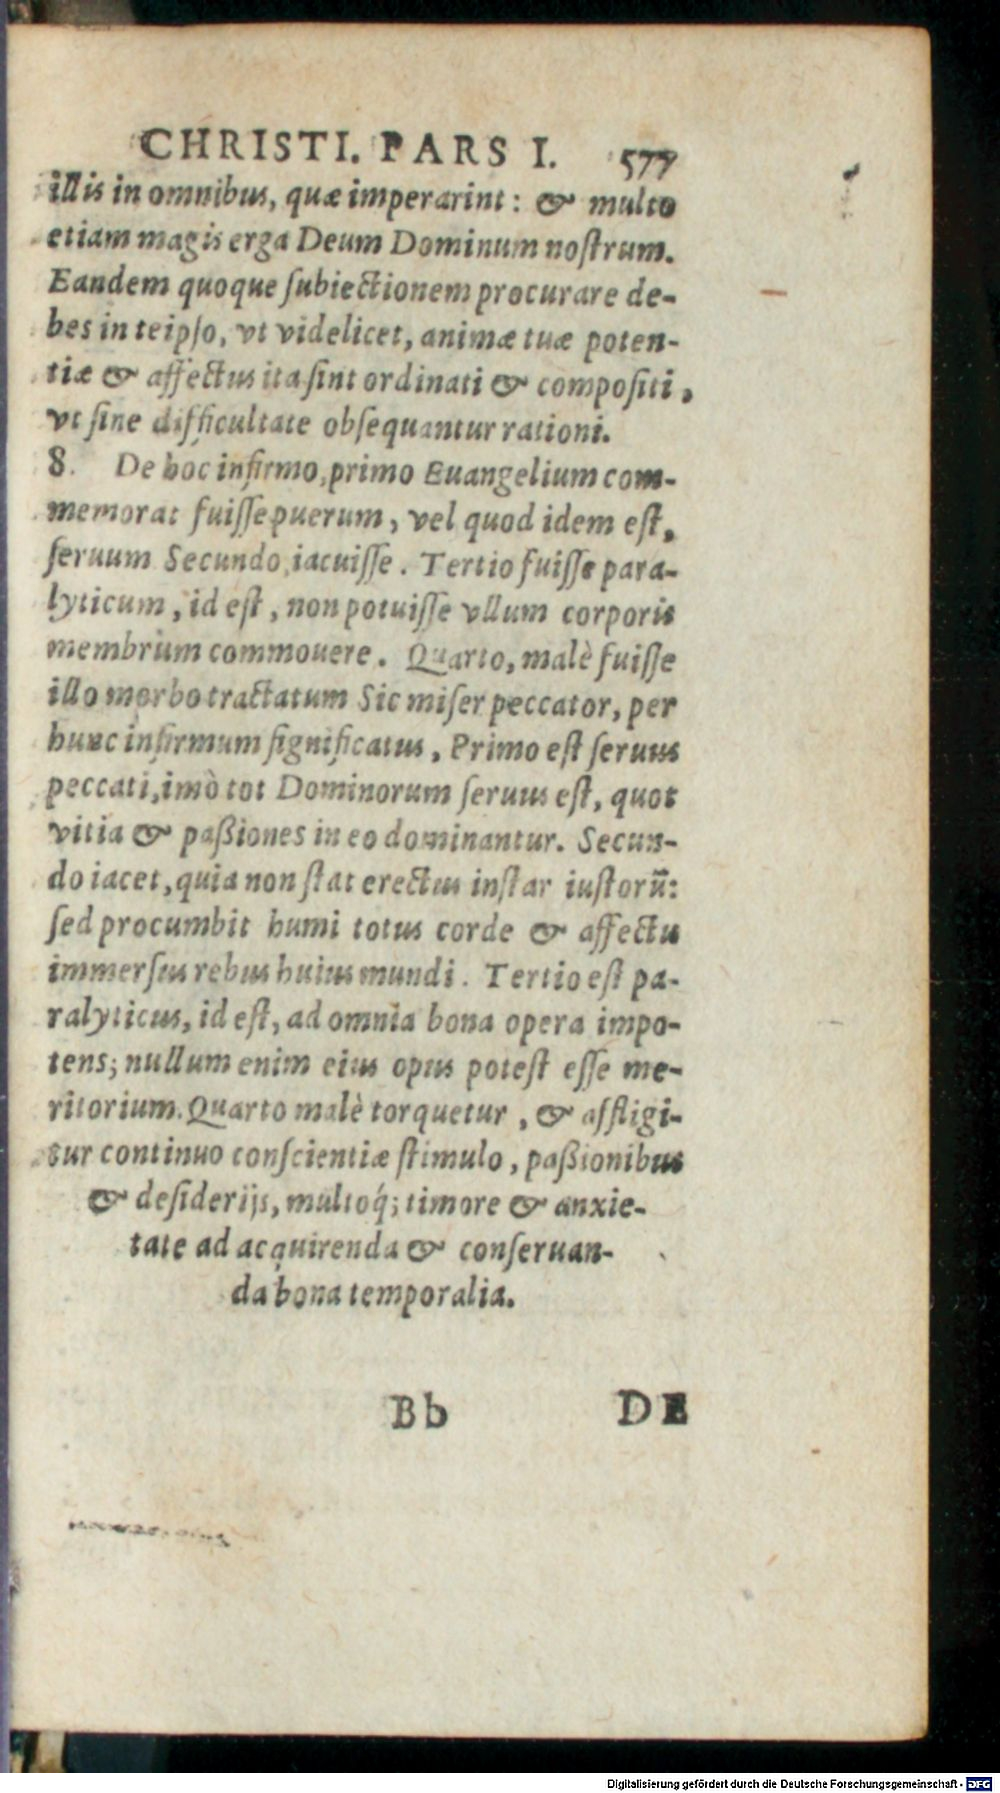 CHRISTI. PARS I. 577
illis in omnibus, quæ imperarint: & multo
etiam magis erga Deum Dominum noſtrum.
Eandem quoque ſubiectionem procurare de-
bes in teipſo, vt videlicet, animæ tuæ poten-
tiæ & affectus ita ſint ordinati & compoſiti,
vt ſine difficultate obſequantur rationi.
8. De hoc infirmo, primo Euangelium com-
memorat fuiſſe puerum, vel quod idem eſt,
ſeruum Secundo iacuiſſe. Tertio fuiſſe para-
lyticum, id eſt, non potuiſſe vllum corporis
membrum commouere. Quarto, malè fuiſſe
illo morbo tractatum Sic miſer peccator, per
hunc infirmum ſignificatus, Primo eſt ſeruus
peccati, imò tot Dominorum ſeruus eſt, quot
vitia & paßiones in eo dominantur. Secun-
do iacet, quia non ſtat erectus inſtar iuſtorū:
ſed procumbit humi totus corde & affectu
immerſus rebus huius mundi. Tertio eſt pa-
ralyticus, id eſt, ad omnia bona opera impo-
tens; nullum enim eius opus poteſt eſſe me-
ritorium. Quarto malè torquetur, & affligi-
tur continuo conſcientiæ ſtimulo, paßionibus
& deſiderijs, multoq́; timore & anxie-
tate ad acquirenda & conſeruan-
da bona temporalia.
Bb DE
Digitalisierung gefördert durch die Deutsche Forschungsgemeinschaft - DFG